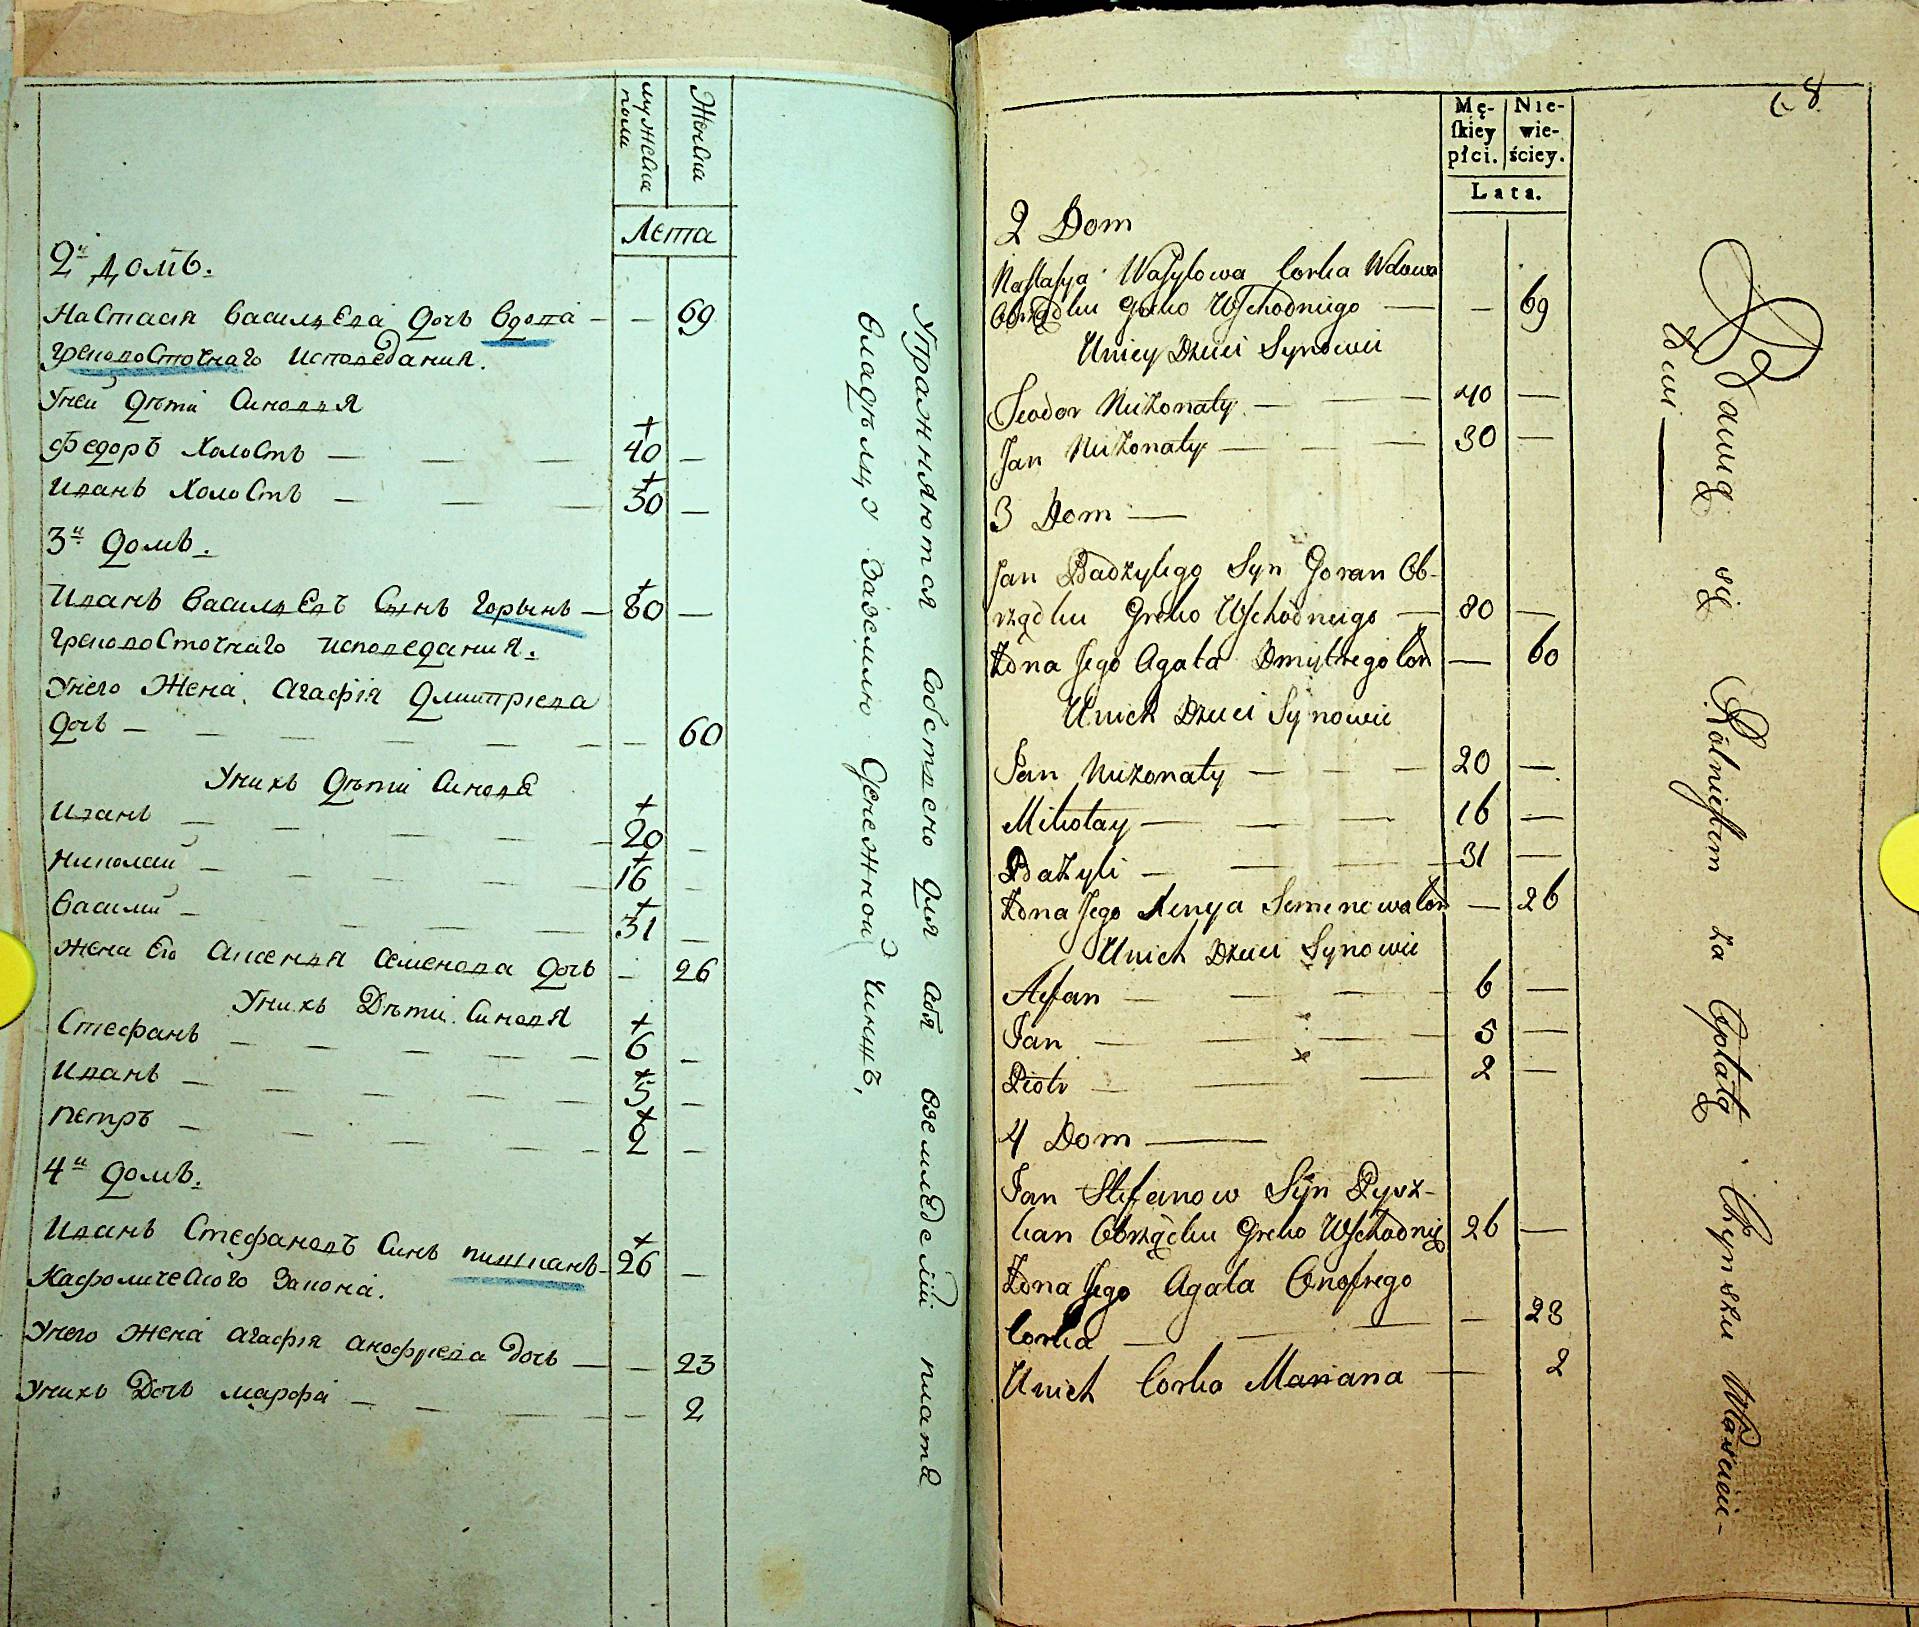 мужеска пола
Женска
Лета
2й домъ.
Настасiя васильева дочь вдова — — 69
грековосточнаго исповедания.
Унеи дѣти синовя
Федоръ холостъ — — — 40 —
Иванъ холостъ — — — 30 —
3й домъ.
Иванъ васильевъ сынъ горынъ — 80 —
грековосточнаго исповедания.
Унего жена агафiя дмитрiева
дочь — — — — — — 60
Унихъ дѣти синовя
Иванъ — — — — 20 —
николай — — — — 16 —
василий — — — — 31 —
жена его аксенья семенова дочь — 26
Унихъ дѣти синовя
Стефанъ — — — — 6 —
Иванъ — — — — 5 —
петръ — — — — 2 —
4й домъ.
Иванъ Стефановъ Синъ пишканъ — 26 —
Кафолического закона.
Унего жена агафiя анофрiева дочь — — 23
Унихъ дочь марфа — — — — 2
Упражняются собствено для себя
владѣлцу заземлю денежной чиншъ,
68
Mę-skiey płci.
Nie-wie-ściey.
Lata.
2 Dom
Nastasya Wasylowa Corka Wdowa
Obrządku Greko Wschodniego — — 69
Uniey Dzieci Synowie
Teodor Niżonaty — — 40 —
Jan Niżonaty — — 30 —
3 Dom —
Jan Badzylego Syn Goran Ob-
rządku Greko Wschodniego — 80 —
Żona Jego Agata Dmytrego Cor — 60
Unich Dzieci Synowie
Jan Niżonaty — — — 20 —
Mikołay — — — 16 —
Bazyli — — — 31 —
Żona Jego Xenya Semenowa Cor — 26
Unich Dzieci Synowie
Stefan — — — 6 —
Jan — — — 5 —
Piotr — — — 2 —
4 Dom —
Jan Stefanow Syn Pysz-
kan Obrządku Greko Wschodnie 26 —
Żona Jego Agata Onofrego
Corka — — — — 23
Unich Corka Mariana — 2
Bawią się Rolnictwem za Opłatą Czynszu Właścicie-
lowi —